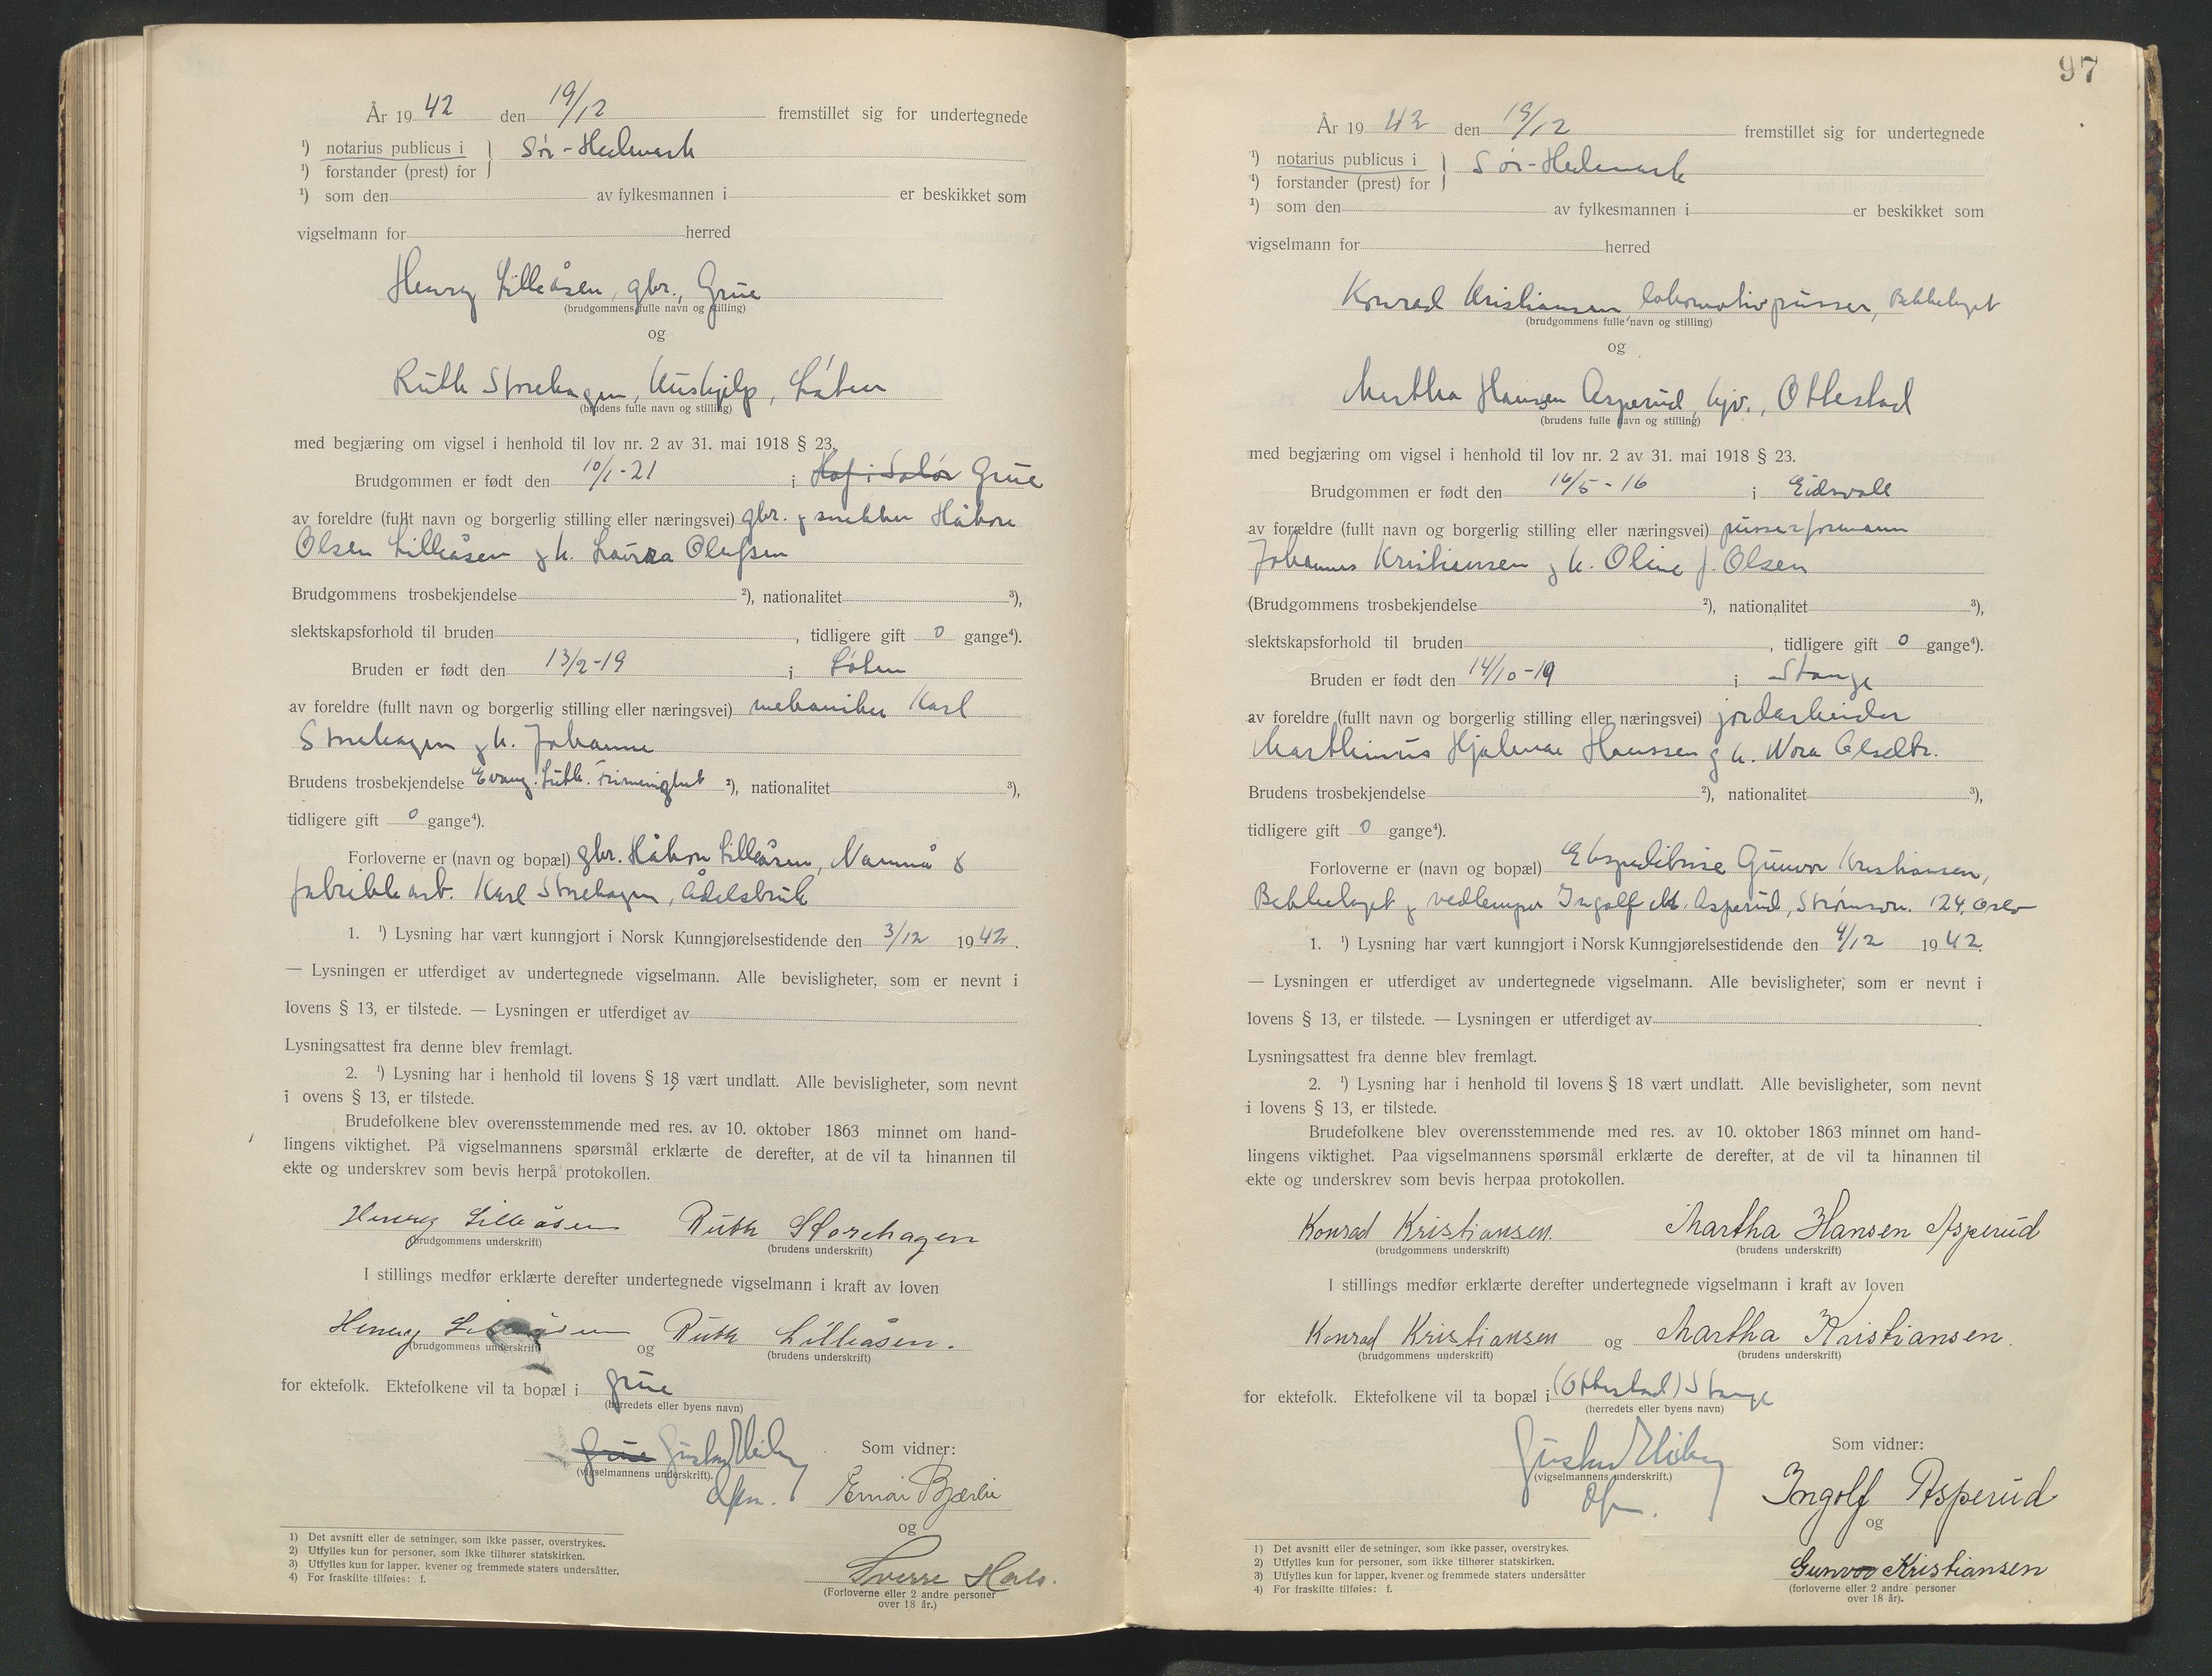 År 1942 den 19/12 fremstillet sig for undertegnede
¹) notarius publicus i } Sør-Hedmark
¹) forstander (prest) for
¹) som den av fylkesmannen i er beskikket som
vigselmann for herred
Henry Lilleåsen, gbr., Grue
(brudgommens fulle navn og stilling)
og
Ruth Storehagen, hushjelp, Løten
(brudens fulle navn og stilling)
med begjæring om vigsel i henhold til lov nr. 2 av 31. mai 1918 § 23.
Brudgommen er født den 10/1-21 i Hof i Solør Grue
av foreldre (fullt navn og borgerlig stilling eller næringsvei) gbr. og snekker Håkon
Olsen Lilleåsen og h. Laura Olufsen
Brudgommens trosbekjendelse ²), nationalitet ³),
slektskapsforhold til bruden , tidligere gift 0 gange⁴).
Bruden er født den 13/2-19 i Løten
av foreldre (fullt navn og borgerlig stilling eller næringsvei) mekaniker Karl
Storehagen og h. Johanne
Brudens trosbekjendelse Evang. Luth. Frimenighet ²), nationalitet ³),
tidligere gift 0 gange⁴).
Forloverne er (navn og bopæl) gbr. Håkon Lilleåsen, Namnå &
fabrikkarb. Karl Storehagen, Ådalsbruk
1. ¹) Lysning har vært kunngjort i Norsk Kunngjørelsestidende den 3/12 1942.
— Lysningen er utferdiget av undertegnede vigselmann. Alle bevisligheter, som er nevnt i
lovens § 13, er tilstede. — Lysningen er utferdiget av
Lysningsattest fra denne blev fremlagt.
2. ¹) Lysning har i henhold til lovens § 18 vært undlatt. Alle bevisligheter, som nevnt
i ovens § 13, er tilstede.
Brudefolkene blev overensstemmende med res. av 10. oktober 1863 minnet om hand-
lingens viktighet. På vigselmannens spørsmål erklærte de derefter, at de vil ta hinannen til
ekte og underskrev som bevis herpå protokollen.
Henry Lilleåsen Ruth Storehagen
(brudgommens underskrift) (brudens underskrift)
I stillings medfør erklærte derefter undertegnede vigselmann i kraft av loven
Henry Lilleåsen og Ruth Lilleåsen.
(brudgommens underskrift) (brudens underskrift)
for ektefolk. Ektefolkene vil ta bopæl i Grue
(herredets eller byens navn)
Grue Gustav Som vidner:
(vigselmannens underskrift).
og
Sverre
(Forloverne eller 2 andre personer
over 18 år.)
1) Det avsnitt eller de setninger, som ikke passer, overstrykes.
2) Utfylles kun for personer, som ikke tilhører statskirken.
3) Utfylles kun for lapper, kvener og fremmede staters undersåtter.
4) For fraskilte tilføies: f.
97
År 1942 den 19/12 fremstillet sig for undertegnede
¹) notarius publicus i } Sør-Hedmark
¹) forstander (prest) for
¹) som den av fylkesmannen i er beskikket som
vigselmann for herred
Konrad Kristiansen, lokomotivpusser, Bekkelaget
(brudgommens fulle navn og stilling)
og
Martha Hansen Asperud, hjv., Ottestad
(brudens fulle navn og stilling)
med begjæring om vigsel i henhold til lov nr. 2 av 31. mai 1918 § 23.
Brudgommen er født den 16/5-16 i Eidsvoll
av forældre (fullt navn og borgerlig stilling eller næringsvei) pusserformann
Johannes Kristiansen og h. Oline J. Olsen
(Brudgommens trosbekjendelse ²), nationalitet ³),
slektskapsforhold til bruden , tidligere gift 0 gange⁴).
Bruden er født den 14/10-19 i Stange
av foreldre (fullt navn og borgerlig stilling eller næringsvei) jordarbeider
Marthinius Hjalmar Hanssen og h. Nora Olsdtr.
Brudens trosbekjendelse ²), nationalitet ³),
tidligere gift 0 gange⁴).
Forloverne er (navn og bopæl) Ekspeditrise Gunvor Kristiansen,
Bekkelaget og vedlemper Ingolf M. Asperud, Strømsvn. 124, Oslo
1. ¹) Lysning har vært kunngjort i Norsk Kunngjørelsestidende den 4/12 1942.
— Lysningen er utferdiget av undertegnede vigselmann. Alle bevisligheter, som er nevnt i
lovens § 13, er tilstede. — Lysningen er utferdiget av
Lysningsattest fra denne blev fremlagt.
2. ¹) Lysning har i henhold til lovens § 18 vært undlatt. Alle bevisligheter, som nevnt
i lovens § 13, er tilstede.
Brudefolkene blev overensstemmende med res. av 10. oktober 1863 minnet om hand-
lingens viktighet. Paa vigselmannens spørsmål erklærte de derefter, at de vil ta hinannen til
ekte og underskrev som bevis herpaa protokollen.
Konrad Kristiansen. Martha Hansen Asperud
(brudgommens underskrift) (brudens underskrift)
I stillings medfør erklærte derefter undertegnede vigselmann i kraft av loven
Konrad Kristiansen og Martha Kristiansen.
(brudgommens underskrift) (brudens underskrift)
for ektefolk. Ektefolkene vil ta bopæl i (Ottestad) Stange
(herredets eller byens navn)
Gustav Som vidner:
(vigselmannens underskrift.)
Ingolf Asperud
og
Gunvor Kristiansen
(forloverne eller 2 andre personer
over 18 år).
1) Det avsnitt eller de setninger, som ikke passer, overstrykes.
2) Utfylles kun for personer, som ikke tilhører statskirken.
3) Utfylles kun for lapper, kvener og fremmede staters undersåtter
4) For fraskilte tilføies: f.